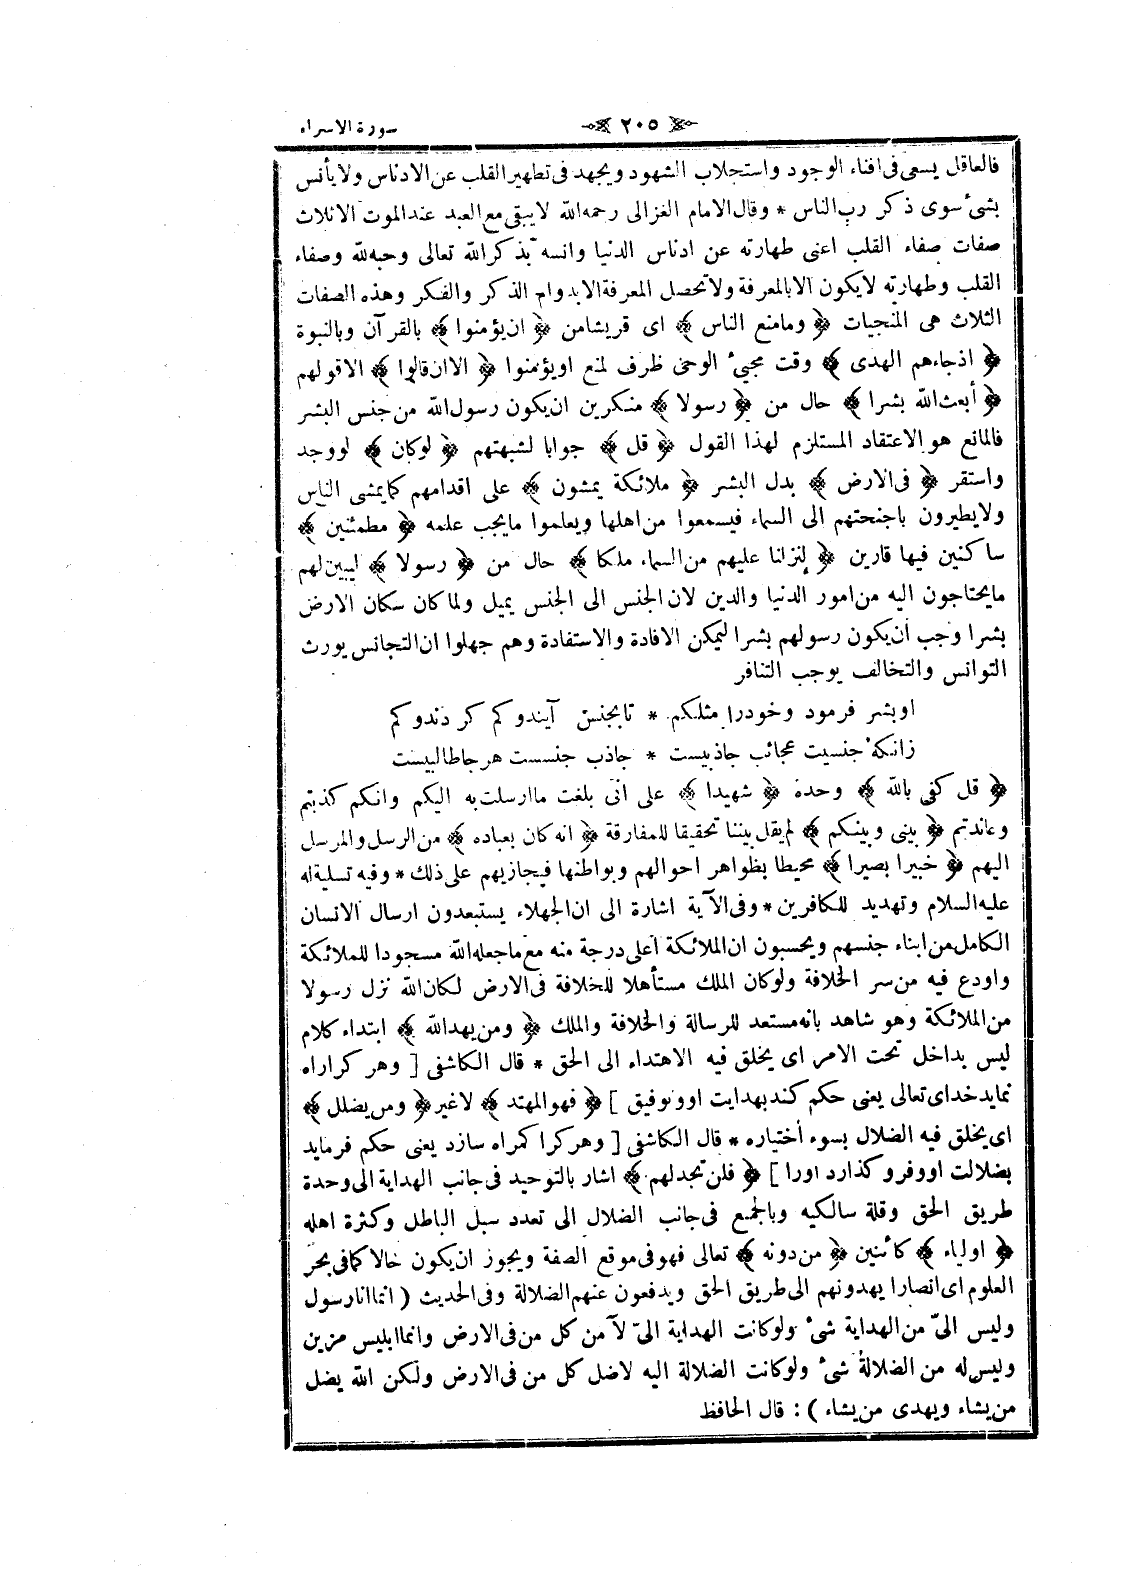 ٢٠٥ سورة الاسراء
فالعاقل يسعى فى افناء الوجود واستجلاب الشهود ويجهد فى تطهير القلب عن الادناس ولا يأنس
بشئ سوى ذكر رب الناس * وقال الامام الغزالى رحمه الله لا يبقى مع العبد عند الموت الا ثلاث
صفات صفاء القلب اعنى طهارته عن ادناس الدنيا وانسه بذكر الله تعالى وحبه لله وصفاء
القلب وطهارته لا يكون الا بالمعرفة ولا تحصل المعرفة الا بدوام الذكر والفكر وهذه الصفات
الثلاث هى المنجيات ﴿ وما منع الناس ﴾ اى قريشا من ﴿ ان يؤمنوا ﴾ بالقرآن وبالنبوة
﴿ اذ جاءهم الهدى ﴾ وقت مجيئ الوحى ظرف لمنع او يؤمنوا ﴿ الا ان قالوا ﴾ الا قولهم
﴿ أبعث الله بشرا ﴾ حال من ﴿ رسولا ﴾ منكرين ان يكون رسول الله من جنس البشر
فالمانع هو الاعتقاد المستلزم لهذا القول ﴿ قل ﴾ جوابا لشبهتهم ﴿ لو كان ﴾ لو وجد
واستقر ﴿ فى الارض ﴾ بدل البشر ﴿ ملائكة يمشون ﴾ على اقدامهم كما يمشى الناس
ولا يطيرون باجنحتهم الى السماء فيسمعوا من اهلها ويعلموا ما يجب علمه ﴿ مطمئنين ﴾
ساكنين فيها قارين ﴿ لنزلنا عليهم من السماء ملكا ﴾ حال من ﴿ رسولا ﴾ ليبين لهم
ما يحتاجون اليه من امور الدنيا والدين لان الجنس الى الجنس يميل ولما كان سكان الارض
بشرا وجب أن يكون رسولهم بشرا ليمكن الافادة والاستفادة وهم جهلوا ان التجانس يورث
التوانس والتخالف يوجب التنافر
او بشر فرمود وخودرا مثلكم * تا بجنس آيندوكم كردندوكم
زانكه جنسيت عجائب جاذبيست * جاذب جنسست هرجا طالبيست
﴿ قل كفى بالله ﴾ وحده ﴿ شهيدا ﴾ على انى بلغت ما ارسلت به اليكم وانكم كذبتم
وعاندتم ﴿ بينى وبينكم ﴾ لم يقل بيننا تحقيقا للمفارقة ﴿ انه كان بعباده ﴾ من الرسل والمرسل
اليهم ﴿ خبيرا بصيرا ﴾ محيطا بظواهر احوالهم وبواطنها فيجازيهم على ذلك * وفيه تسلية له
عليه السلام وتهديد للكافرين * وفى الآية اشارة الى ان الجهلاء يستبعدون ارسال الانسان
الكامل من ابناء جنسهم ويحسبون ان الملائكة أعلى درجة منه مع ما جعله الله مسجودا للملائكة
واودع فيه من سر الخلافة ولو كان الملك مستأهلا للخلافة فى الارض لكان الله نزل رسولا
من الملائكة وهو شاهد بانه مستعد للرسالة والخلافة والملك ﴿ ومن يهد الله ﴾ ابتداء كلام
ليس بداخل تحت الامر اى يخلق فيه الاهتداء الى الحق * قال الكاشفى [ وهر كرا راه
نمايد خداى تعالى يعنى حكم كند بهدايت او وتوفيق ] ﴿ فهو المهتد ﴾ لا غير ﴿ ومن يضلل ﴾
اى يخلق فيه الضلال بسوء أختياره * قال الكاشفى [ وهر كرا كمراه سازد يعنى حكم فرمايد
بضلالت او وفرو كذارد اورا ] ﴿ فلن تجد لهم ﴾ اشار بالتوحيد فى جانب الهداية الى وحدة
طريق الحق وقلة سالكيه وبالجمع فى جانب الضلال الى تعدد سبل الباطل وكثرة اهله
﴿ اولياء ﴾ كائنين ﴿ من دونه ﴾ تعالى فهو فى موقع الصفة ويجوز ان يكون حالا كما فى بحر
العلوم اى انصارا يهدونهم الى طريق الحق ويدفعون عنهم الضلالة وفى الحديث ( انما انا رسول
وليس الىّ من الهداية شئ ولو كانت الهداية الىّ لآمن كل من فى الارض وانما ابليس مزين
وليس له من الضلالة شئ ولو كانت الضلالة اليه لاضل كل من فى الارض ولكن الله يضل
من يشاء ويهدى من يشاء ) : قال الحافظ